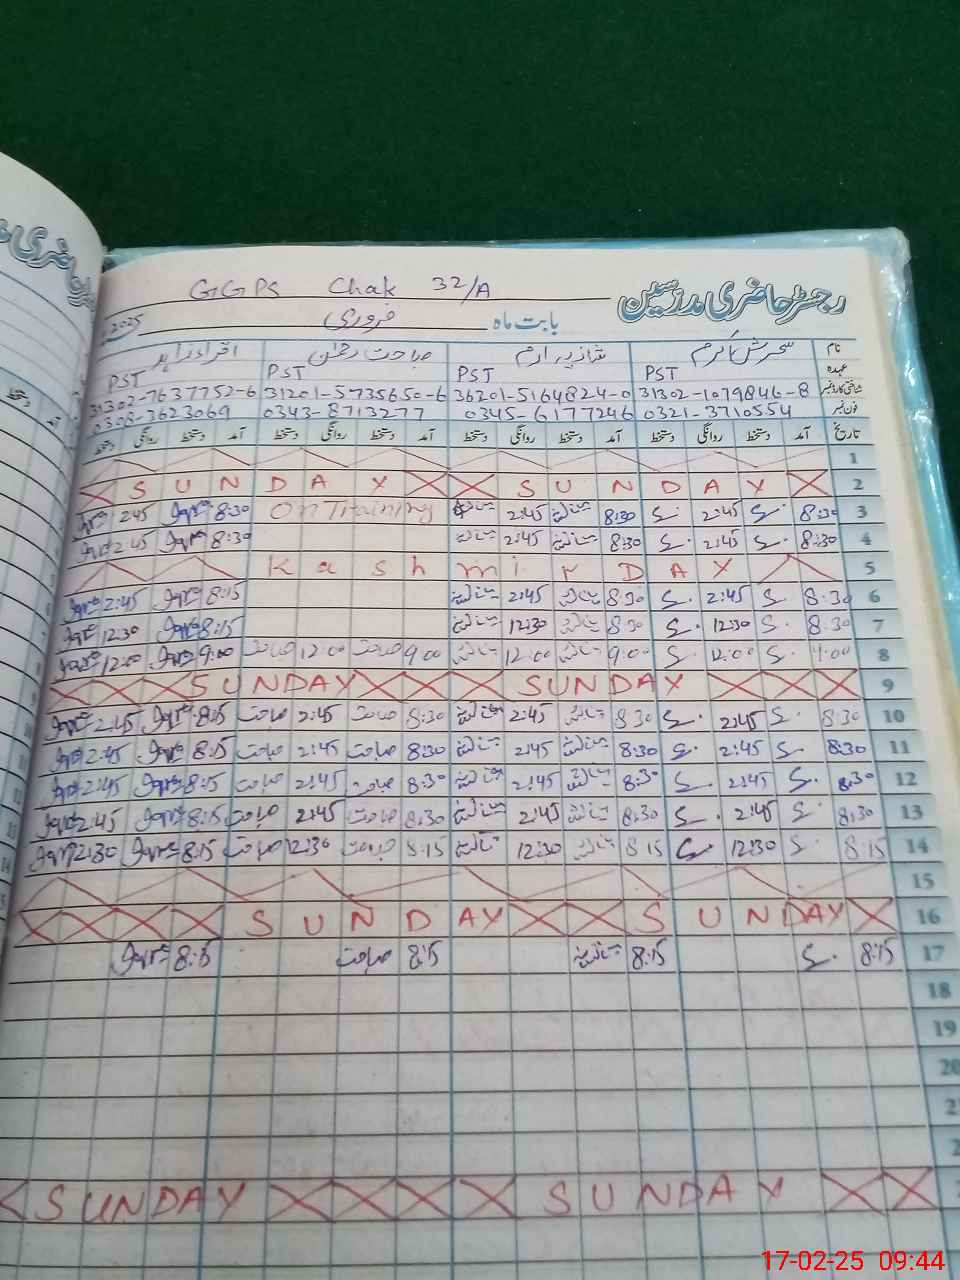 GGPS Chak 32/A رجسٹر حاضری مدرسین
بابت ماہ فروری 2025
نام سحرش اکرم شازیہ ارم صباحت رحمٰن اقراء زاہد
عہدہ PST PST PST PST
شناختی کارڈ نمبر 31302-1079846-8 36201-5164824-0 31201-5735650-6 31302-7637752-6
فون نمبر 0321-3710554 0345-6177246 0343-8713277 0308-3623069
تاریخ آمد دستخط روانگی دستخط آمد دستخط روانگی دستخط آمد دستخط روانگی دستخط آمد دستخط روانگی دستخط
1
SUNDAY SUNDAY 2
2:45 8:30 On Training 2:45 8:30 2:45 8:30 3
2:45 8:30 2:45 8:30 2:45 8:30 4
Kashmir DAY 5
2:45 8:15 2:45 8:30 2:45 8:30 6
12:30 8:15 12:30 8:30 12:30 8:30 7
12:00 9:00 صباحت 12:00 صباحت 9:00 12:00 9:00 12:00 9:00 8
SUNDAY SUNDAY 9
2:45 8:15 صباحت 2:45 صباحت 8:30 2:45 8:30 2:45 8:30 10
2:45 8:15 صباحت 2:45 صباحت 8:30 2:45 8:30 2:45 8:30 11
2:45 8:15 صباحت 2:45 صباحت 8:30 2:45 8:30 2:45 8:30 12
2:45 8:15 صباحت 2:45 صباحت 8:30 2:45 8:30 2:45 8:30 13
12:30 8:15 صباحت 12:30 صباحت 8:15 12:30 8:15 12:30 8:15 14
15
SUNDAY SUNDAY 16
8:15 صباحت 8:15 8:15 8:15 17
18
19
20
SUNDAY SUNDAY
17-02-25 09:44